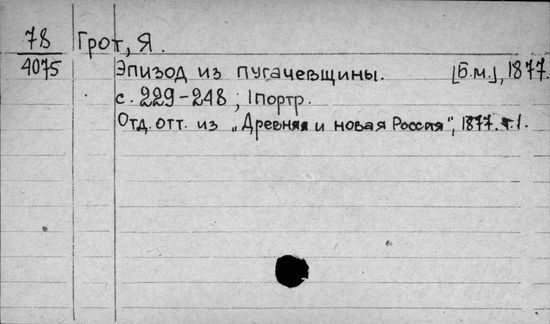 78 Грот, Я.
4075 Эпизод из пугачевщины. [Б.м.], 1877.
с. 229-248; 1 портр.
Отд. отт. из "Древняя и новая Россия", 1877. т.1.